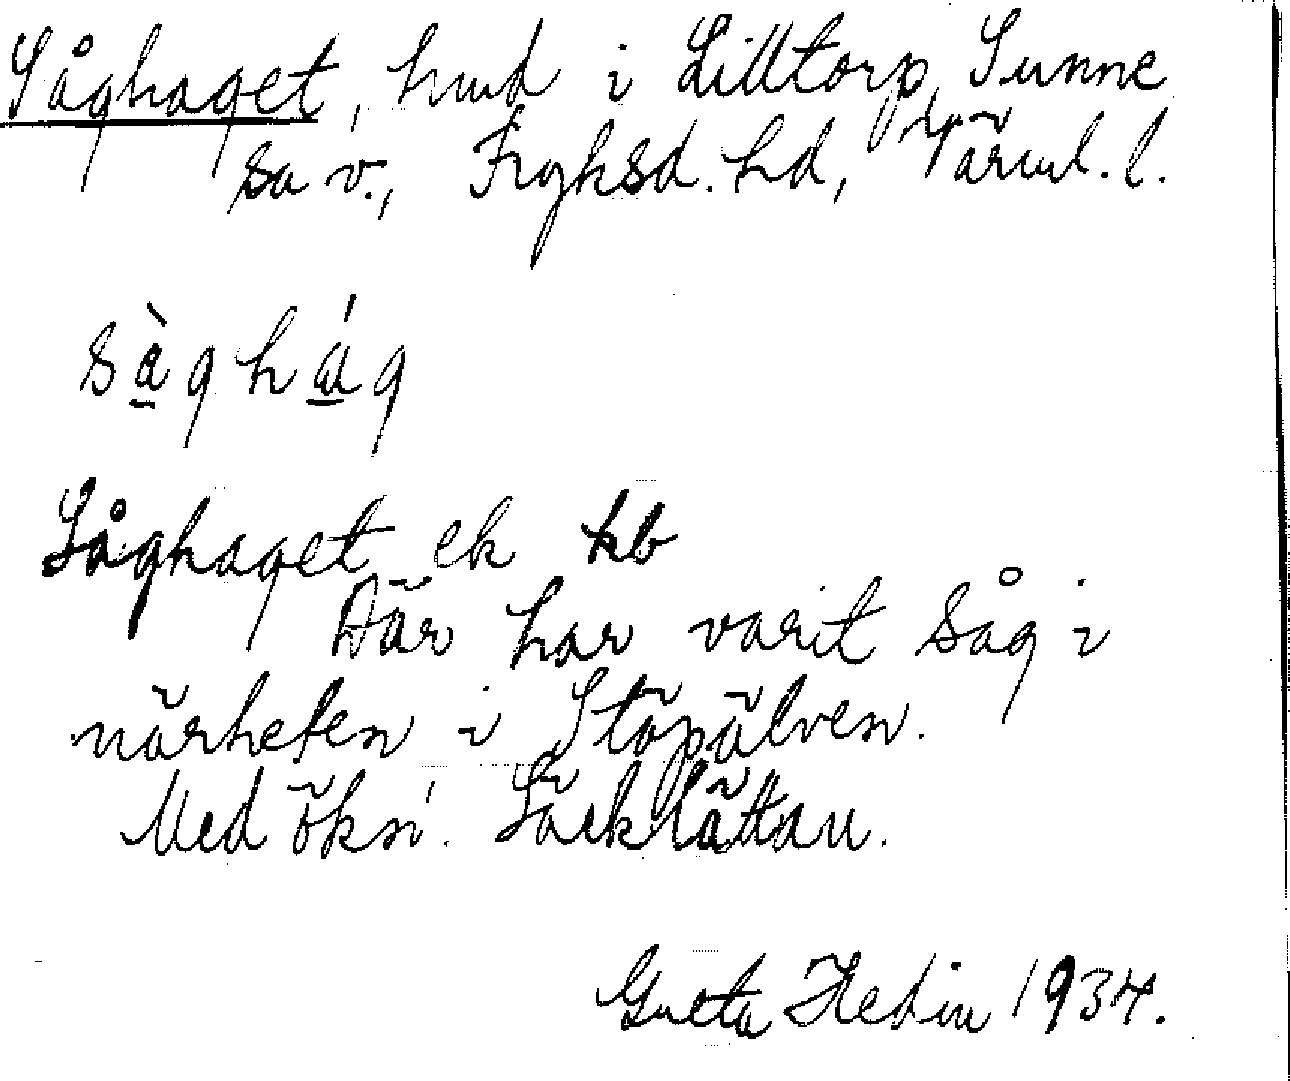 Såghaget, hmd i Lilltorp, Sunne
sn v., Fryksd. hd, Värml. l.
sàghág
Såghaget ek hb
Där har varit såg i
närheten i Stöpälven.
Med ökn. Säcklättan.
Greta Hedin 1934.